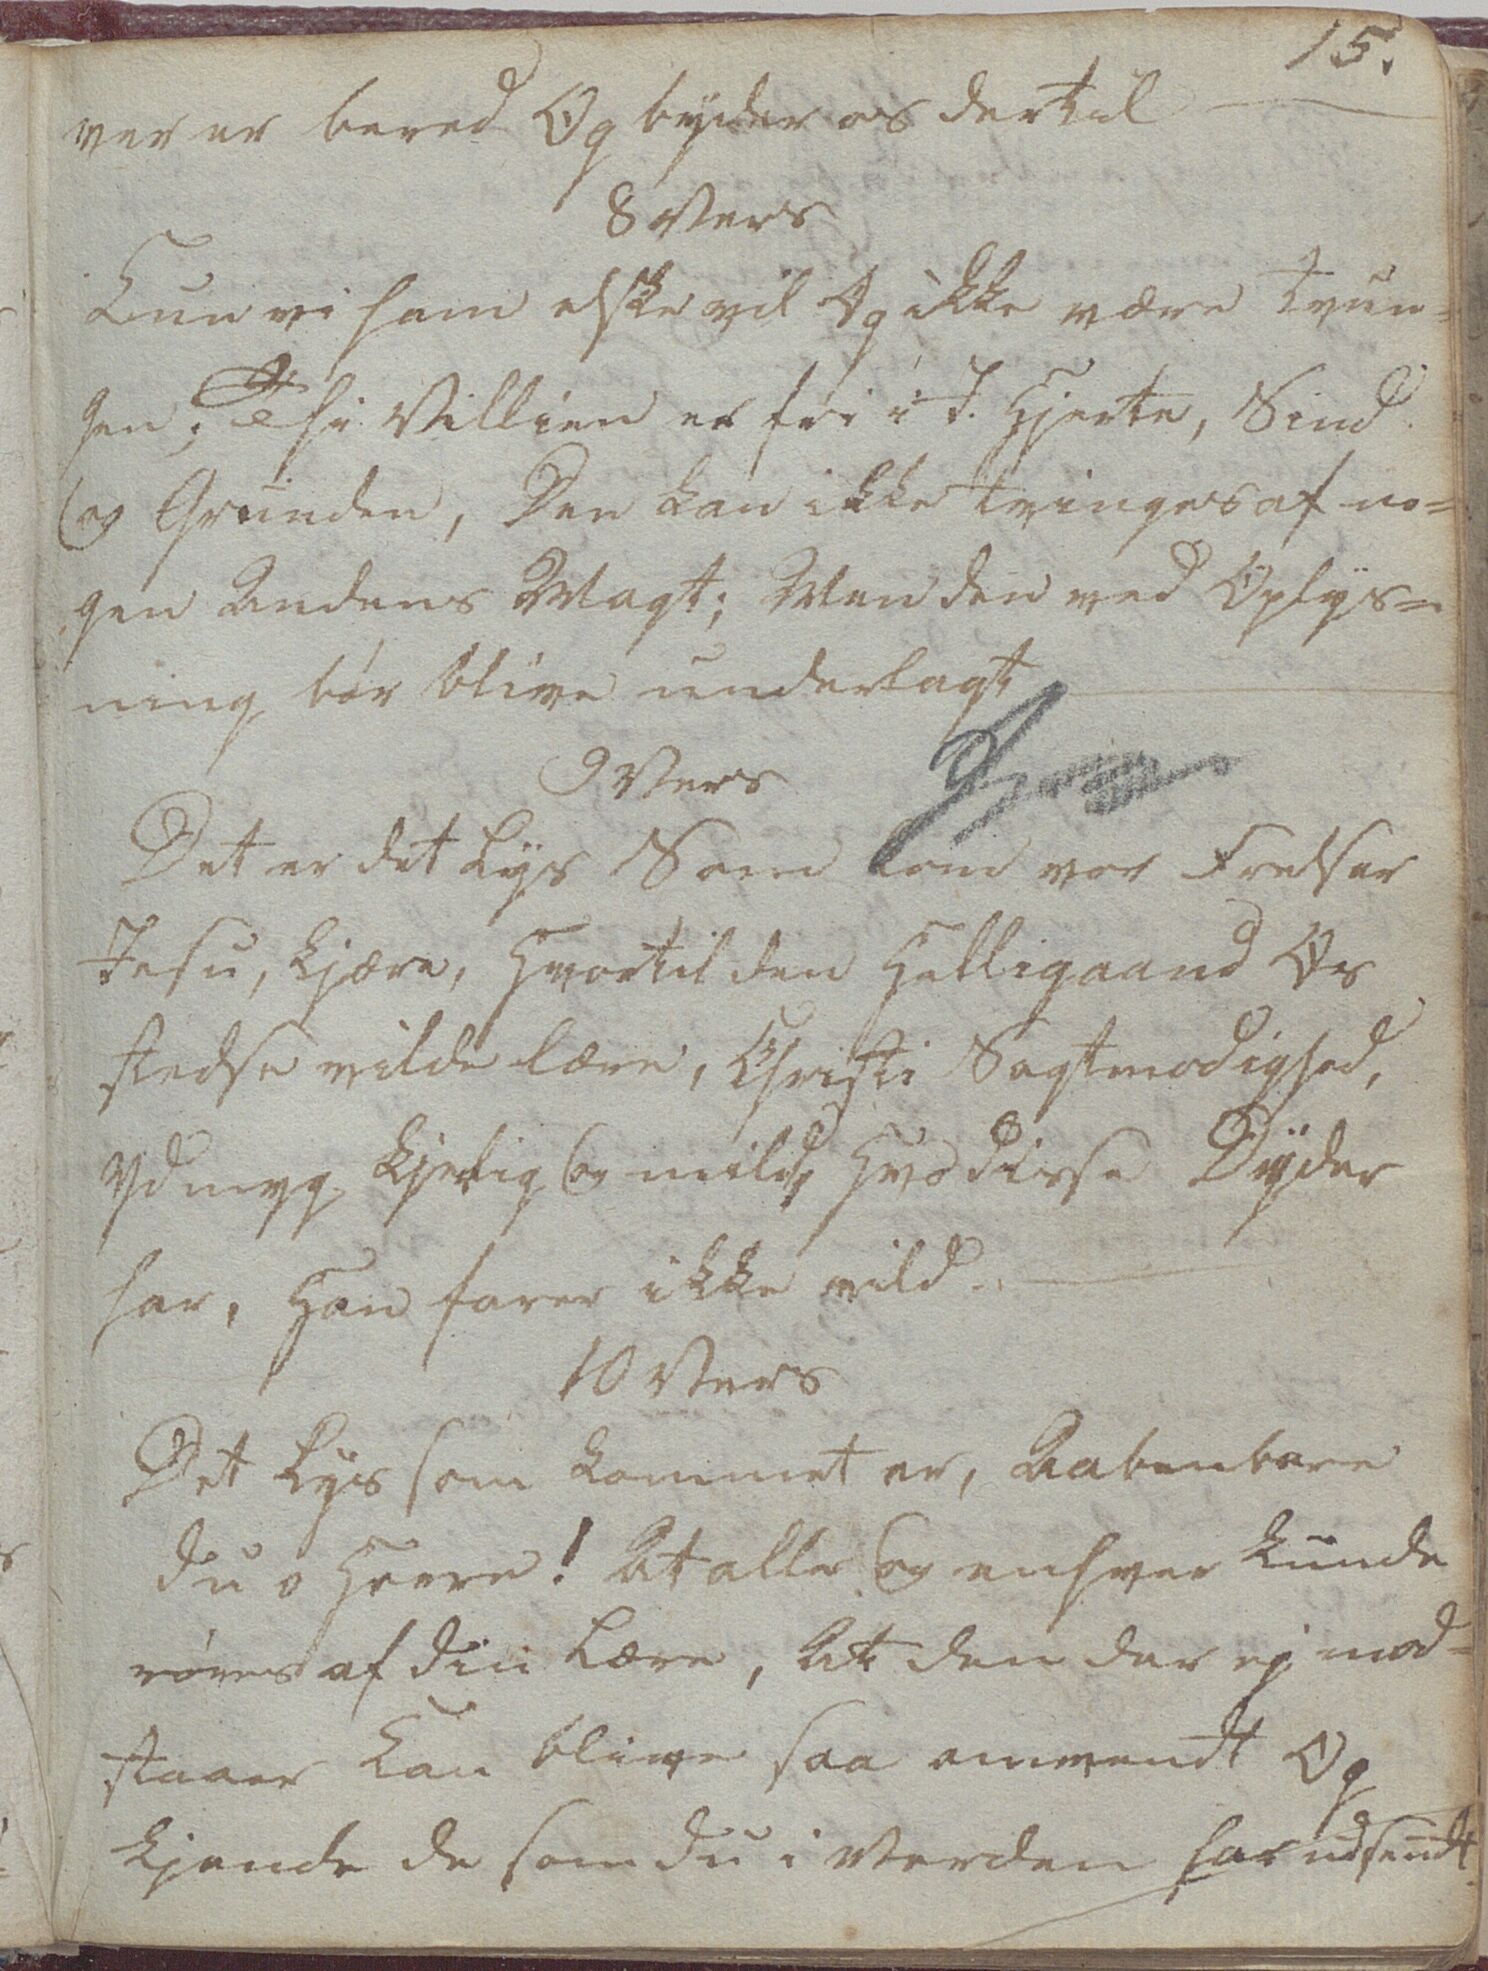 15.
ver er bered Og byder os dertil
8 Vers
Kun vi ham elske vil Og ikke være tvun=
gen; Thi Villien er fri i J. Hjerte, Sind
og Grunden, Den kan ikke tvinges af no=
gen Andens Magt; Men den ved Oplys=
ning bør blive underlagt
9 Vers
Det er det Lys Som kom vor Frelser
Jesu, kjære, Hvortil den Helligaand Os
stedse vilde lære, Christi Sagtmodighed,
Ydmyg kjerlig og mild, Hvo disse Dyder
har, Han farer ikke vild.
10 Vers
Det Lys som kommet er, Aabenbare
du o Herre! At alle og enhver kunde
røres af din Lære, At den der ej mod=
staaer Kan blive saa omvendt Og
kjende de som du i Verden har udsendt